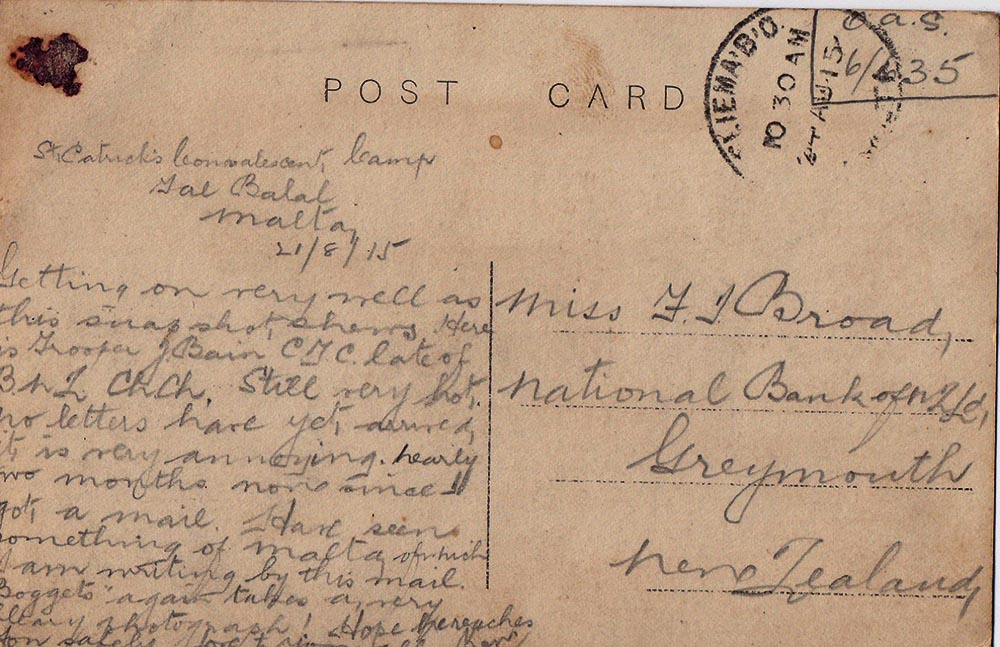 POST CARD
SLIEMA B.O.
10 30 AM
AU 15
O.A.S.
St. Patrick's Convalescent, Camp
Tal Balal
Malta,
21/8/15
Getting on very well as
this snapshot, shews. Here
is Trooper J Bain late of
Ch.Ch. Still very hot,
no letters have yet, arrived,
it, is very annoying. nearly
two months now since I
got, a mail. Have seen
something of Malta, of which
I am writing by this mail.
again takes a, very
photograph! Hope reaches
safely.
Miss F. I. Broad,
National Bank of N.Z. Ld,
Greymouth
New Zealand,